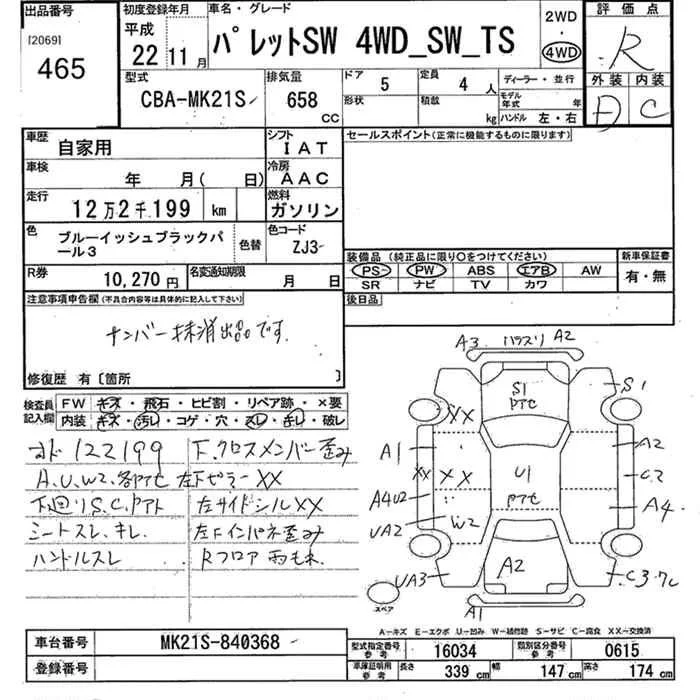 出品番号
[2069]
465
初度登録年月
平成
22 11月
車名・グレード
パレットSW 4WD_SW_TS
2WD
・
4WD
評価点
R
外装 内装
D C
型式
CBA-MK21S
排気量
658
CC
ドア 5
定員 4 人
形状
積載 kg
ディーラー・並行
モデル年式 年
ハンドル 左・右
車歴
自家用
シフト
IAT
車検
年 月( 日)
冷房
AAC
走行
12万2千199 km
燃料
ガソリン
色
ブルーイッシュブラックパール3
色替
色コード
ZJ3
R券
10,270円
名変通知期限
月 日
セールスポイント(正常に機能するものに限ります)
装備品(純正品に限り○をつけてください)
PS PW ABS エアB AW
SR ナビ TV カワ
新車保証書
有・無
後日品
注意事項申告欄(不具合内容等は具体的に記入して下さい)
ナンバー抹消出品です.
修復歴 有〔箇所 〕
検査員記入欄
FW キズ・飛石・ヒビ割・リペア跡・×要
内装 キズ・汚レ・コゲ・穴・スレ・キレ・破レ
122199
下.クロスメンバー歪み
A.U.W2.
XX
下廻りS.C.
左サイドシルXX
シートスレ.キレ.
左Fインパネ歪み
ハンドルスレ
Rフロア雨もれ
A3 A2
S1
S1
XX
A1
U1
A2
XX XX
C2
A4U2
A4
UA2 W2
A2
UA3
C3
A1
スペア
A−キズ E−エクボ U−凹み W−補修跡 S−サビ C−腐食 XX−交換済
車台番号
MK21S-840368
登録番号
型式指定番号 参考
16034
類別区分番号 参考
0615
車庫証明用 参考
長さ 339 cm
幅 147 cm
高さ 174 cm